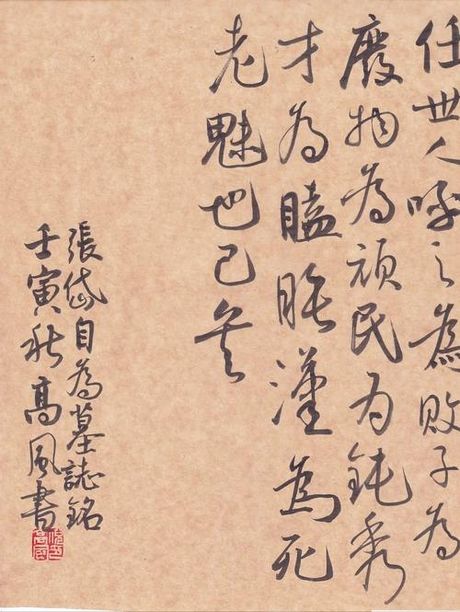 任世人呼之為敗子為
廢物為頑民為鈍秀
才為瞌睡漢為死
老魅也已矣
張岱自為墓誌銘
壬寅秋高風書